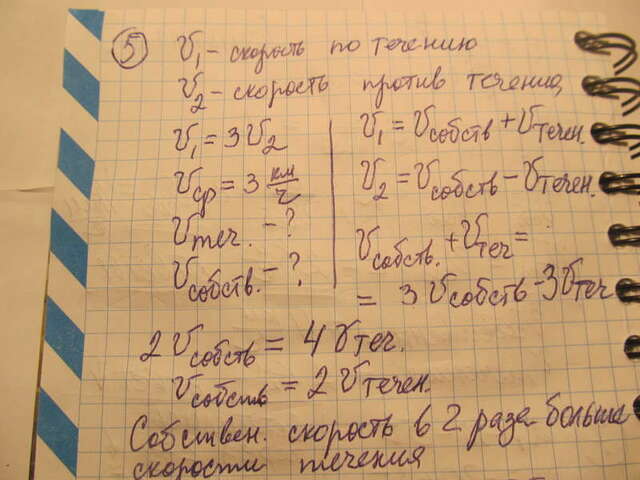 5 V₁ - скорость по течению
V₂ - скорость против течения,
V₁ = 3V₂
Vср = 3 км/ч
Vтеч. - ?
Vсобств. - ?
V₁ = Vсобств + Vтечен.
V₂ = Vсобств - Vтечен.
Vсобств. + Vтеч =
= 3Vсобств - 3Vтеч
2Vсобств = 4Vтеч.
Vсобств = 2Vтечен.
Собствен. скорость в 2 раза больше
скорости течения